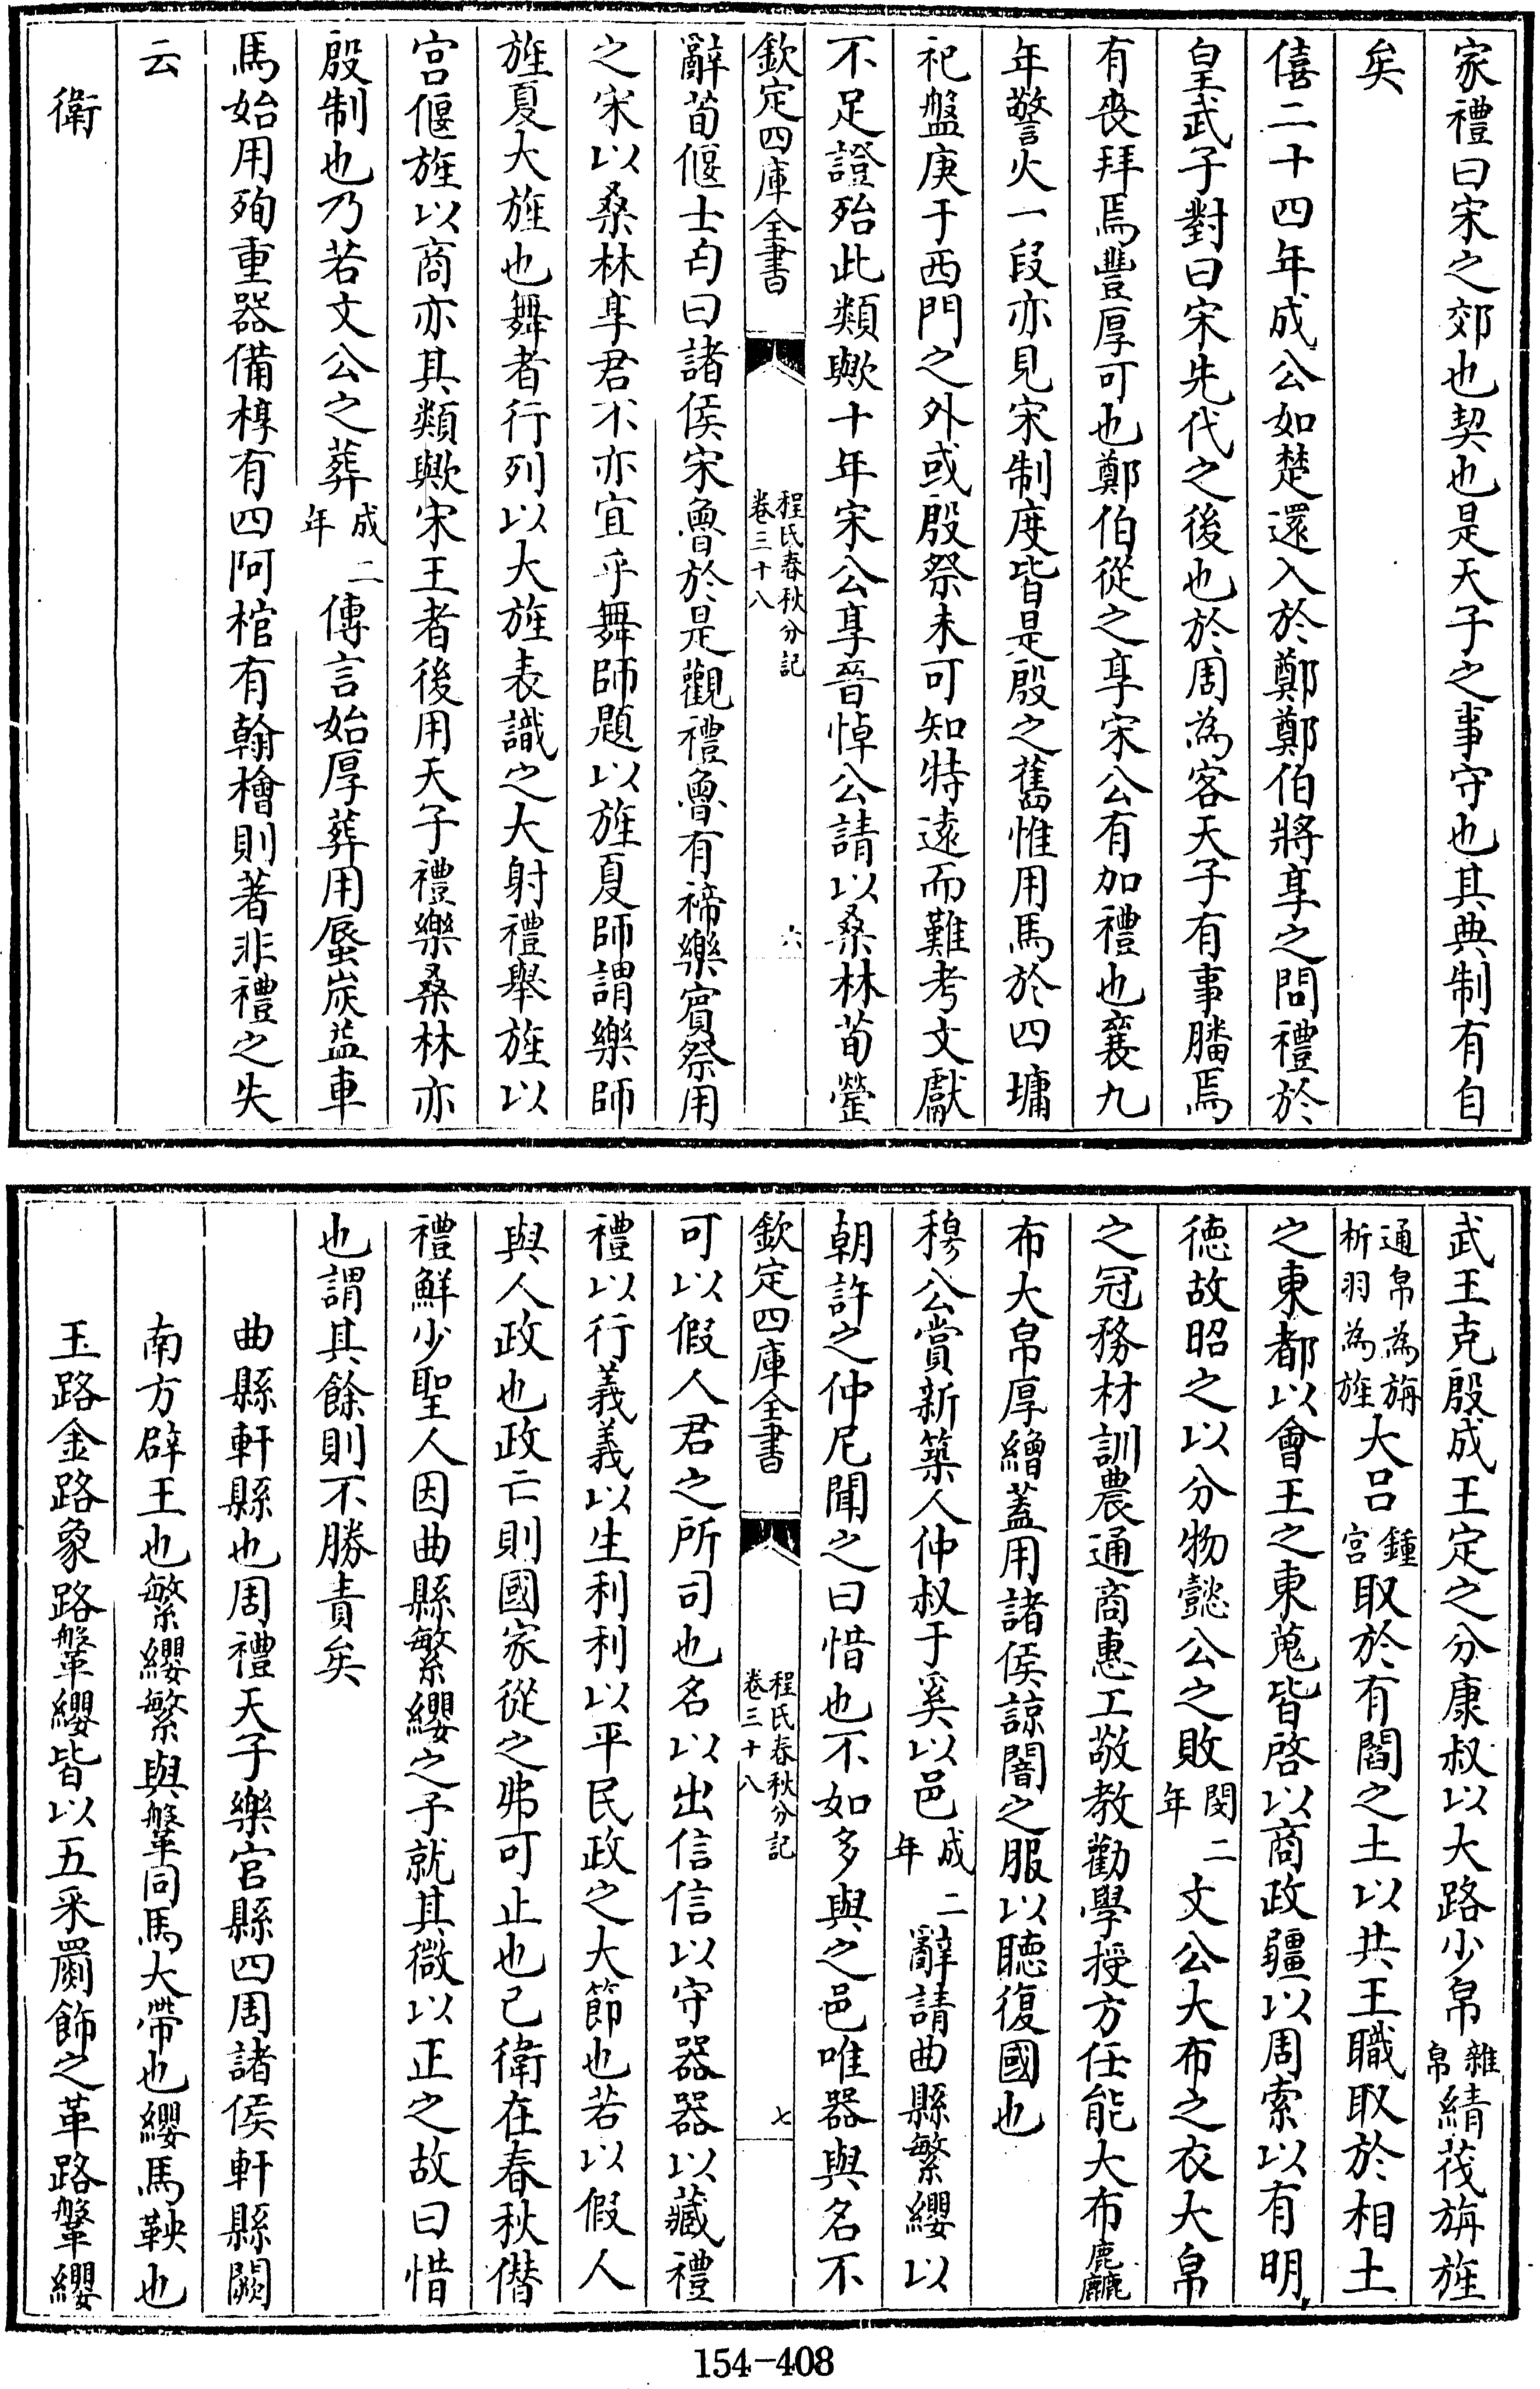 家禮曰宋之郊也契也是天子之事守也其典制有自
矣
僖二十四年成公如楚還入於鄭鄭伯將享之問禮於
皇武子對曰宋先代之後也於周為客天子有事膰焉
有喪拜焉豐厚可也鄭伯從之享宋公有加禮也襄九
年警火一段亦見宋制度皆是殷之舊惟用馬於四墉
祀盤庚于西門之外或殷祭未可知特遠而難考文獻
不足證殆此類歟十年宋公享晉悼公請以桑林荀罃
欽定四庫全書
程氏春秋分記
卷三十八
六
辭荀偃士匄曰諸侯宋魯於是觀禮魯有禘樂賓祭用
之宋以桑林享君不亦宜乎舞師題以旌夏師謂樂師
旌夏大旌也舞者行列以大旌表識之大射禮舉旌以
宮偃旌以商亦其類歟宋王者後用天子禮樂桑林亦
殷制也乃若文公之葬成二年傳言始厚葬用蜃炭益車
馬始用殉重器備椁有四阿棺有翰檜則著非禮之失
云
衛
武王克殷成王定之分康叔以大路少帛雜帛綪茷旃旌
通帛為旃析羽為旌大呂鍾宮取於有閻之土以共王職取於相土
之東都以會王之東蒐皆啓以商政疆以周索以有明
徳故昭之以分物懿公之敗閔二年文公大布之衣大帛
之冠務材訓農通商惠工敬教勸學授方任能大布麄
布大帛厚繒蓋用諸侯諒闇之服以聴復國也
穆公賞新築人仲叔于奚以邑成二年辭請曲縣繁纓以
朝許之仲尼聞之曰惜也不如多與之邑唯器與名不
欽定四庫全書
程氏春秋分記
卷三十八
七
可以假人君之所司也名以出信信以守器器以藏禮
禮以行義義以生利利以平民政之大節也若以假人
與人政也政亡則國家從之弗可止也已衛在春秋僭
禮鮮少聖人因曲縣繁纓之予就其微以正之故曰惜
也謂其餘則不勝責矣
曲縣軒縣也周禮天子樂宮縣四周諸侯軒縣闕
南方辟王也繁纓繁與鞶同馬大帶也纓馬鞅也
玉路金路象路鞶纓皆以五采罽飾之革路鞶纓
154-408